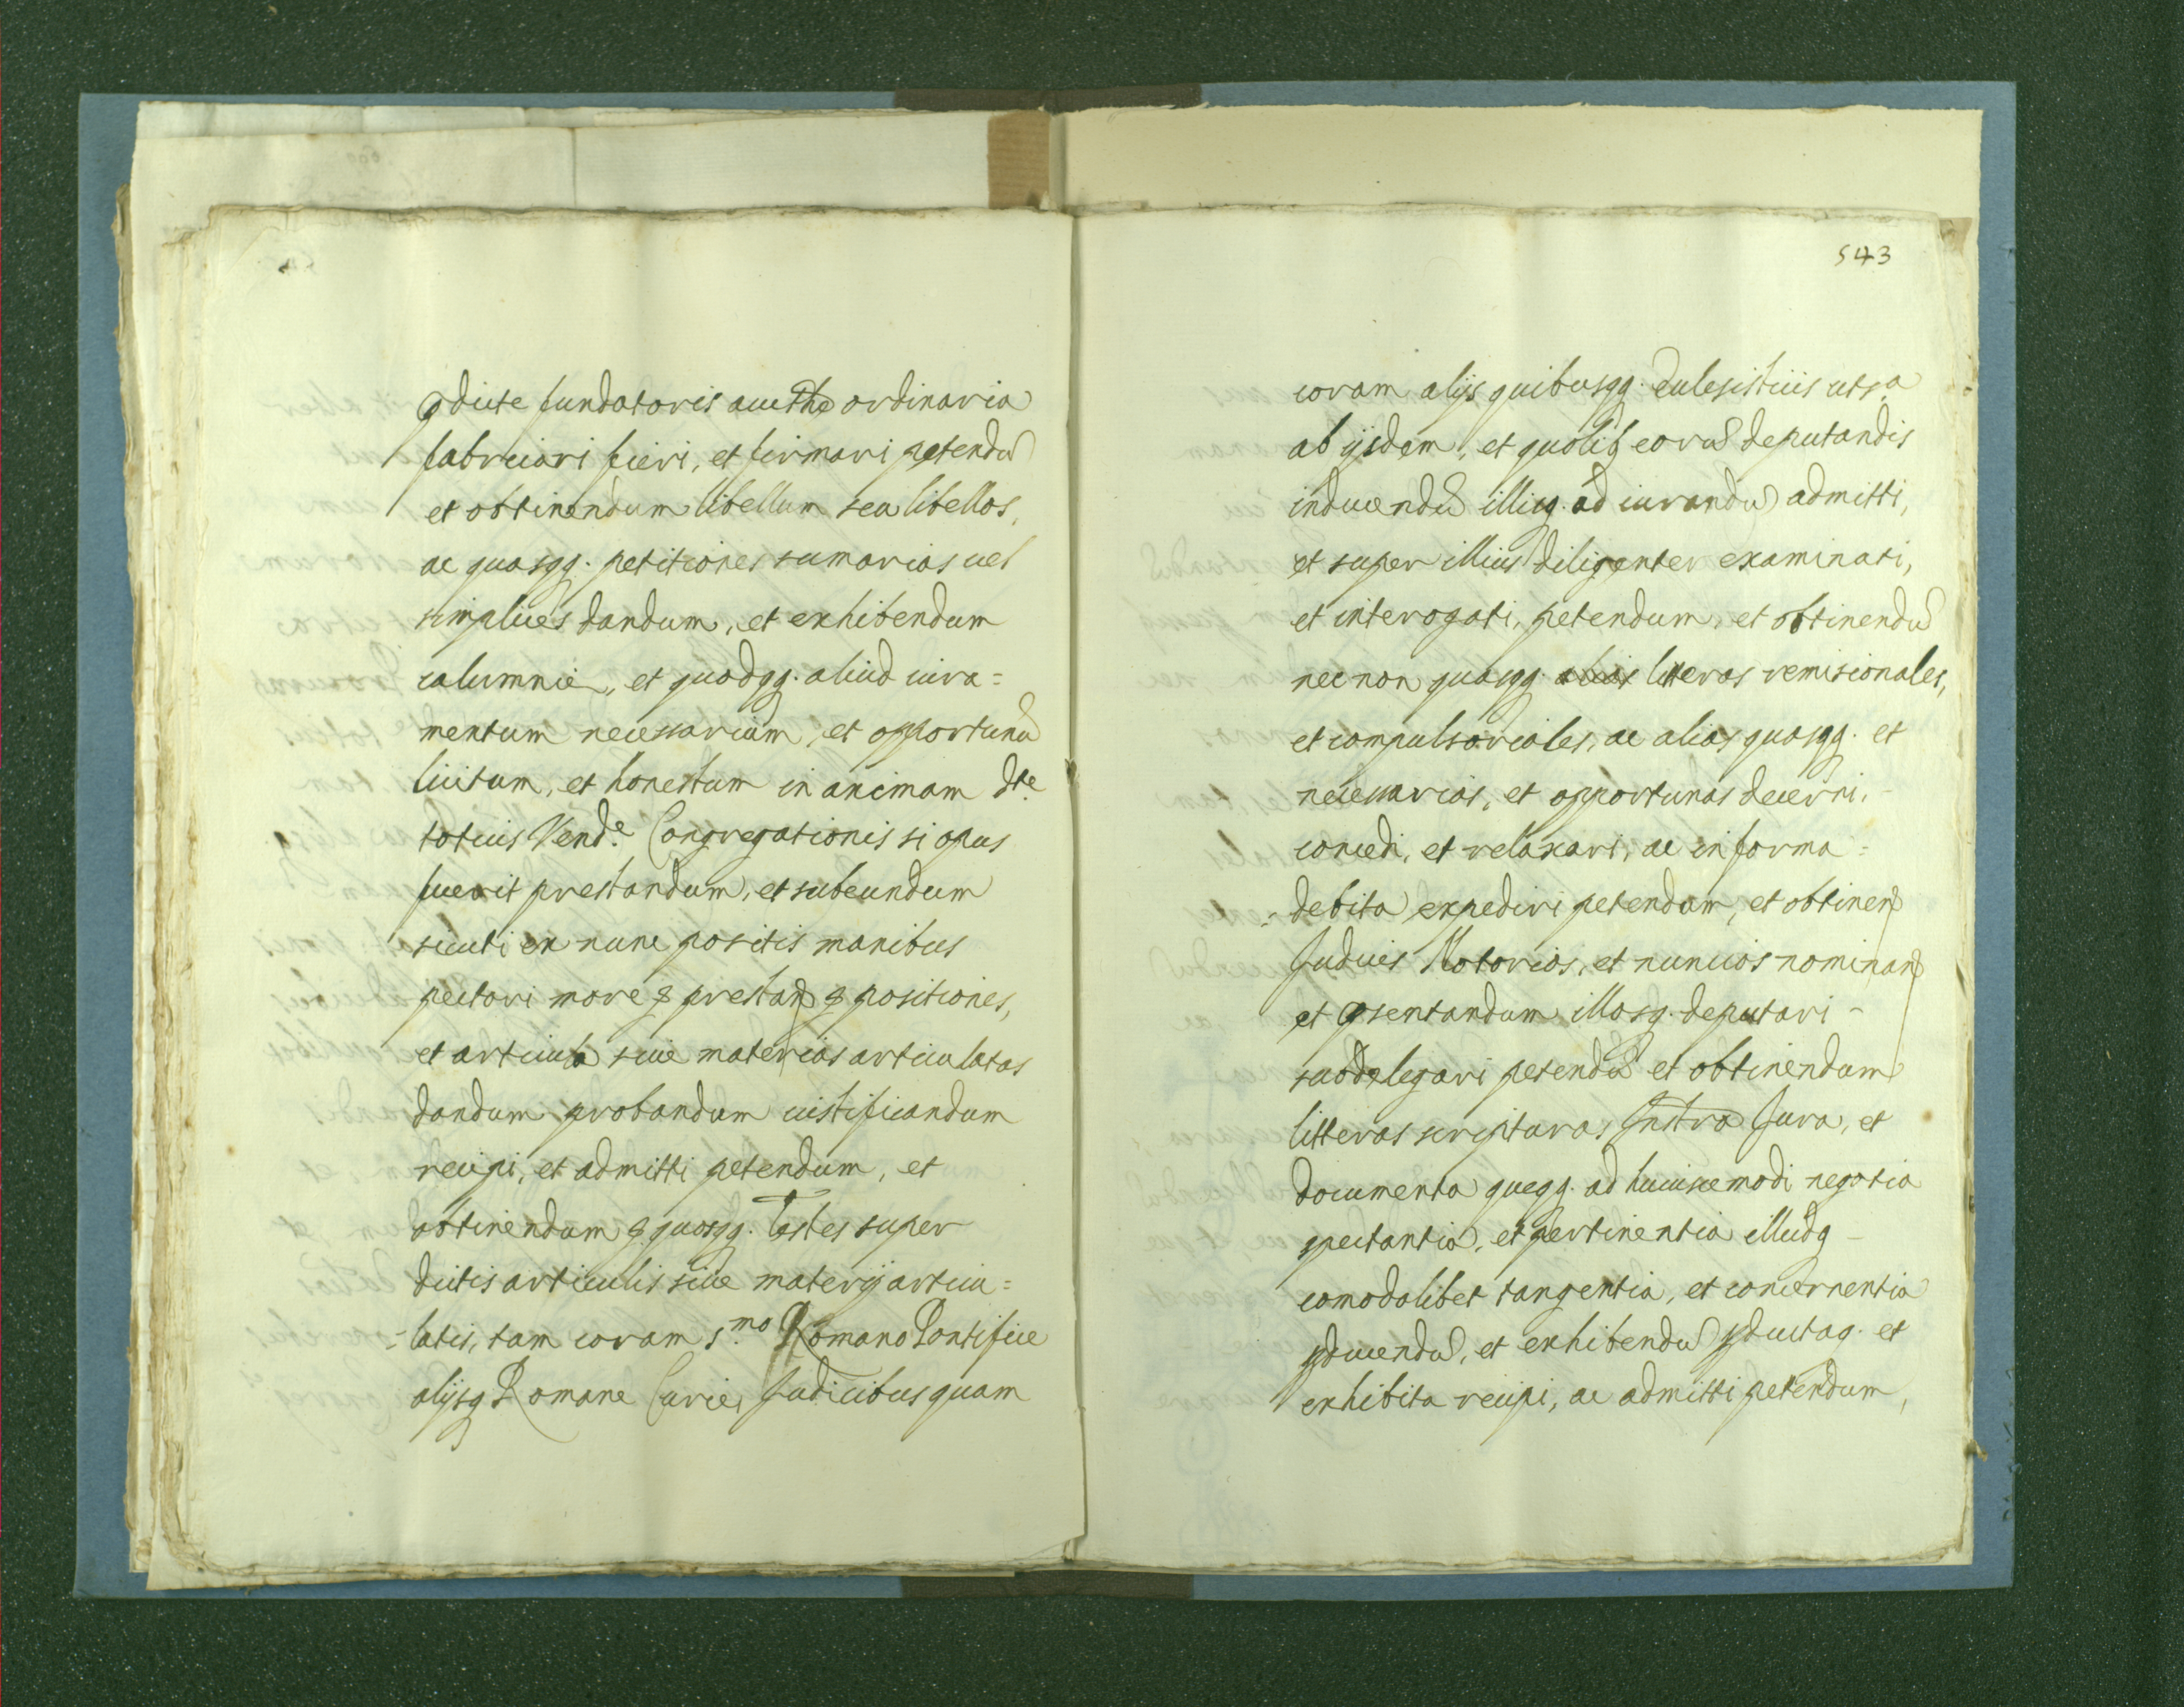 pdicte fundatoris aucthe ordinaria
fabricari fieri, et firmari petendu
et obtinendum libellum seu libellos,
ac quasqq. petitiones sumarias uel
simplices dandum, et exhibendum
calumnie, et quodqq. aliud iura=
mentum necessarium, et opportunu
licitum, et honestum in animam dte
totius Vend.e Congregationis si opus
fuerit prestandum, et subeundum
sicuti ex nunc positis manibus
pectori more prestan positiones,
et articula siue materias articulatas
dandum probandum iustificandum
recipi, et admitti petendum, et
obtinendum quosqq. Testes super
dictis articulis siue materijs articu=
-latis, tam coram s.mo Romano Pontifice
alijsq Romane Curie, Judicibus quam
543
coram alijs quibusqq. Eclesisticis ut s.a
ab ijsdem, et quolib eoru deputandis
inducendu illicq. ad iurandu admitti,
et super illius diligenter examinati,
et interogati, petendum, et obtinendu
nec non quasqq. litteras remisionales,
et compulsoriales, ac alias quasqq. et
necessarias, et opportunas decerni,-
concedi, et relaxari, ac in forma =
-debita expediri petendum, et obtinen
Judices Notarios, et nuncios nominan
et psentandum illosq. deputari -
subdelegari petendu et obtinendum
litteras scripturas Instra Jura, et
documenta queqq. ad huiuscemodi negotia
spectantia, et pertinentia illudq -
comodolibet tangentia, et concernentia
pducendu, et exhibendu pductaq. et
exhibita recipi, ac admitti petendum,